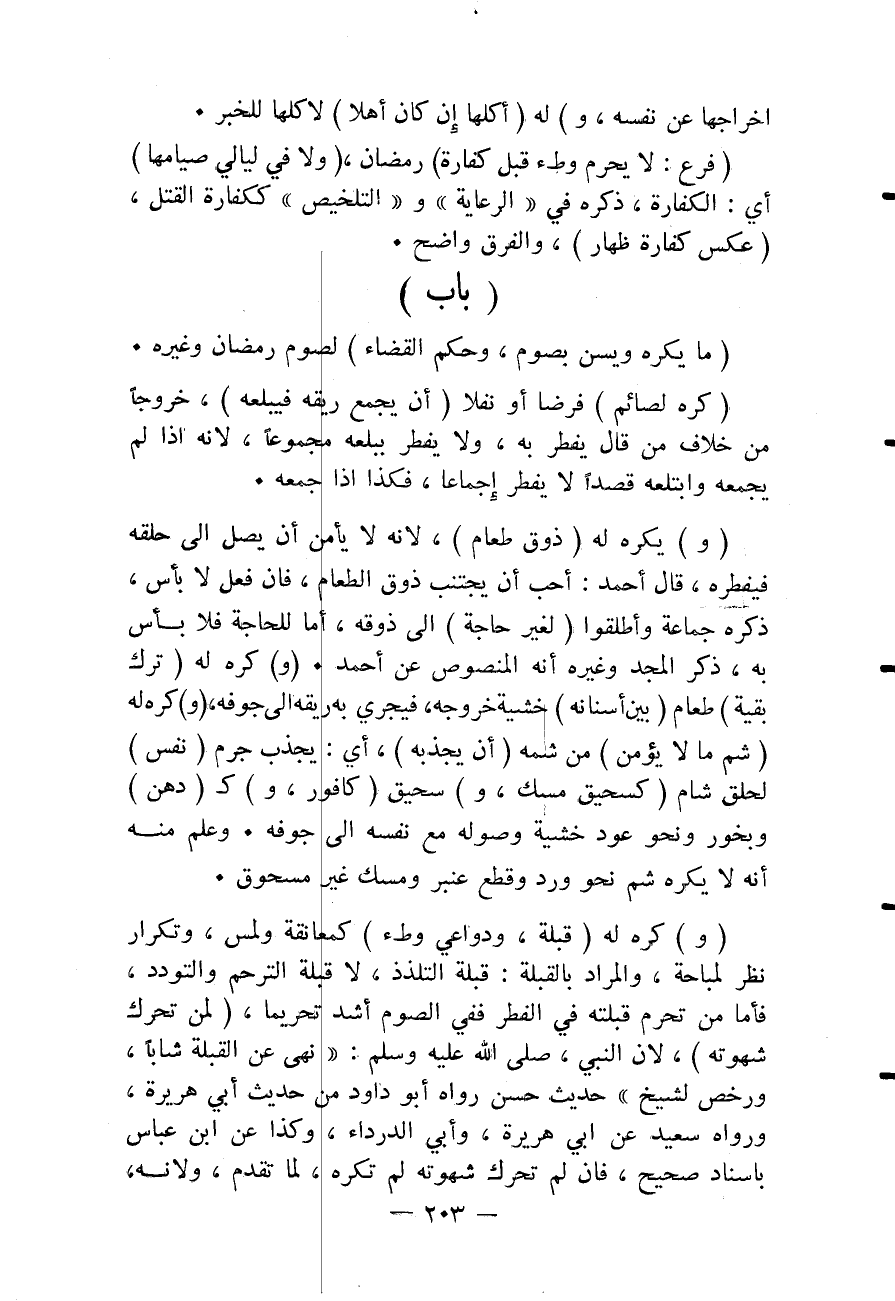 اخراجها عن نفسه ، و ) له ( أكلها إن كان أهلا ) لاكلها للخبر •
( فرع : لا يحرم وطء قبل كفارة) رمضان ،( ولا في ليالي صيامها )
أي : الكفارة ، ذكره في « الرعاية » و « التلخيص » ككفارة القتل ،
( عكس كفارة ظهار ) ، والفرق واضح •
( باب )
( ما يكره ويسن بصوم ، وحكم القضاء ) لصوم رمضان وغيره •
( كره لصائم ) فرضا أو نفلا ( أن يجمع ريقه فيبلعه ) ، خروجاً
من خلاف من قال يفطر به ، ولا يفطر ببلعه مجموعاً ، لانه اذا لم
يجمعه وابتلعه قصداً لا يفطر إجماعا ، فكذا اذا جمعه •
( و ) يكره له ( ذوق طعام ) ، لانه لا يأمن أن يصل الى حلقه
فيفطره ، قال أحمد : أحب أن يجتنب ذوق الطعام ، فان فعل لا بأس ،
ذكره جماعة وأطلقوا ( لغير حاجة ) الى ذوقه ، أما للحاجة فلا بـأس
به ، ذكر المجد وغيره أنه المنصوص عن أحمد • (و) كره له ( ترك
بقية ) طعام ( بين أسنانه ) خشية خروجه، فيجري به ريقه الى جوفه،(و) كره له
( شم ما لا يؤمن ) من شمه ( أن يجذبه ) ، أي : يجذب جرم ( نفس )
لحلق شام ( كسحيق مسك ، و ) سحيق ( كافور ، و ) كـ ( دهن )
وبخور ونحو عود خشية وصوله مع نفسه الى جوفه • وعلم منـه
أنه لا يكره شم نحو ورد وقطع عنبر ومسك غير مسحوق •
( و ) كره له ( قبلة ، ودواعي وطء ) كمعانقة ولمس ، وتكرار
نظر لمباحة ، والمراد بالقبلة : قبلة التلذذ ، لا قبلة الترحم والتودد ،
فأما من تحرم قبلته في الفطر ففي الصوم أشد تحريما ، ( لمن تحرك
شهوته ) ، لان النبي ، صلى الله عليه وسلم : « نهى عن القبلة شاباً ،
ورخص لشيخ » حديث حسن رواه أبو داود من حديث أبي هريرة ،
ورواه سعيد عن ابي هريرة ، وأبي الدرداء ، وكذا عن ابن عباس
باسناد صحيح ، فان لم تحرك شهوته لم تكره ، لما تقدم ، ولانـه،
— ٢٠٣ —